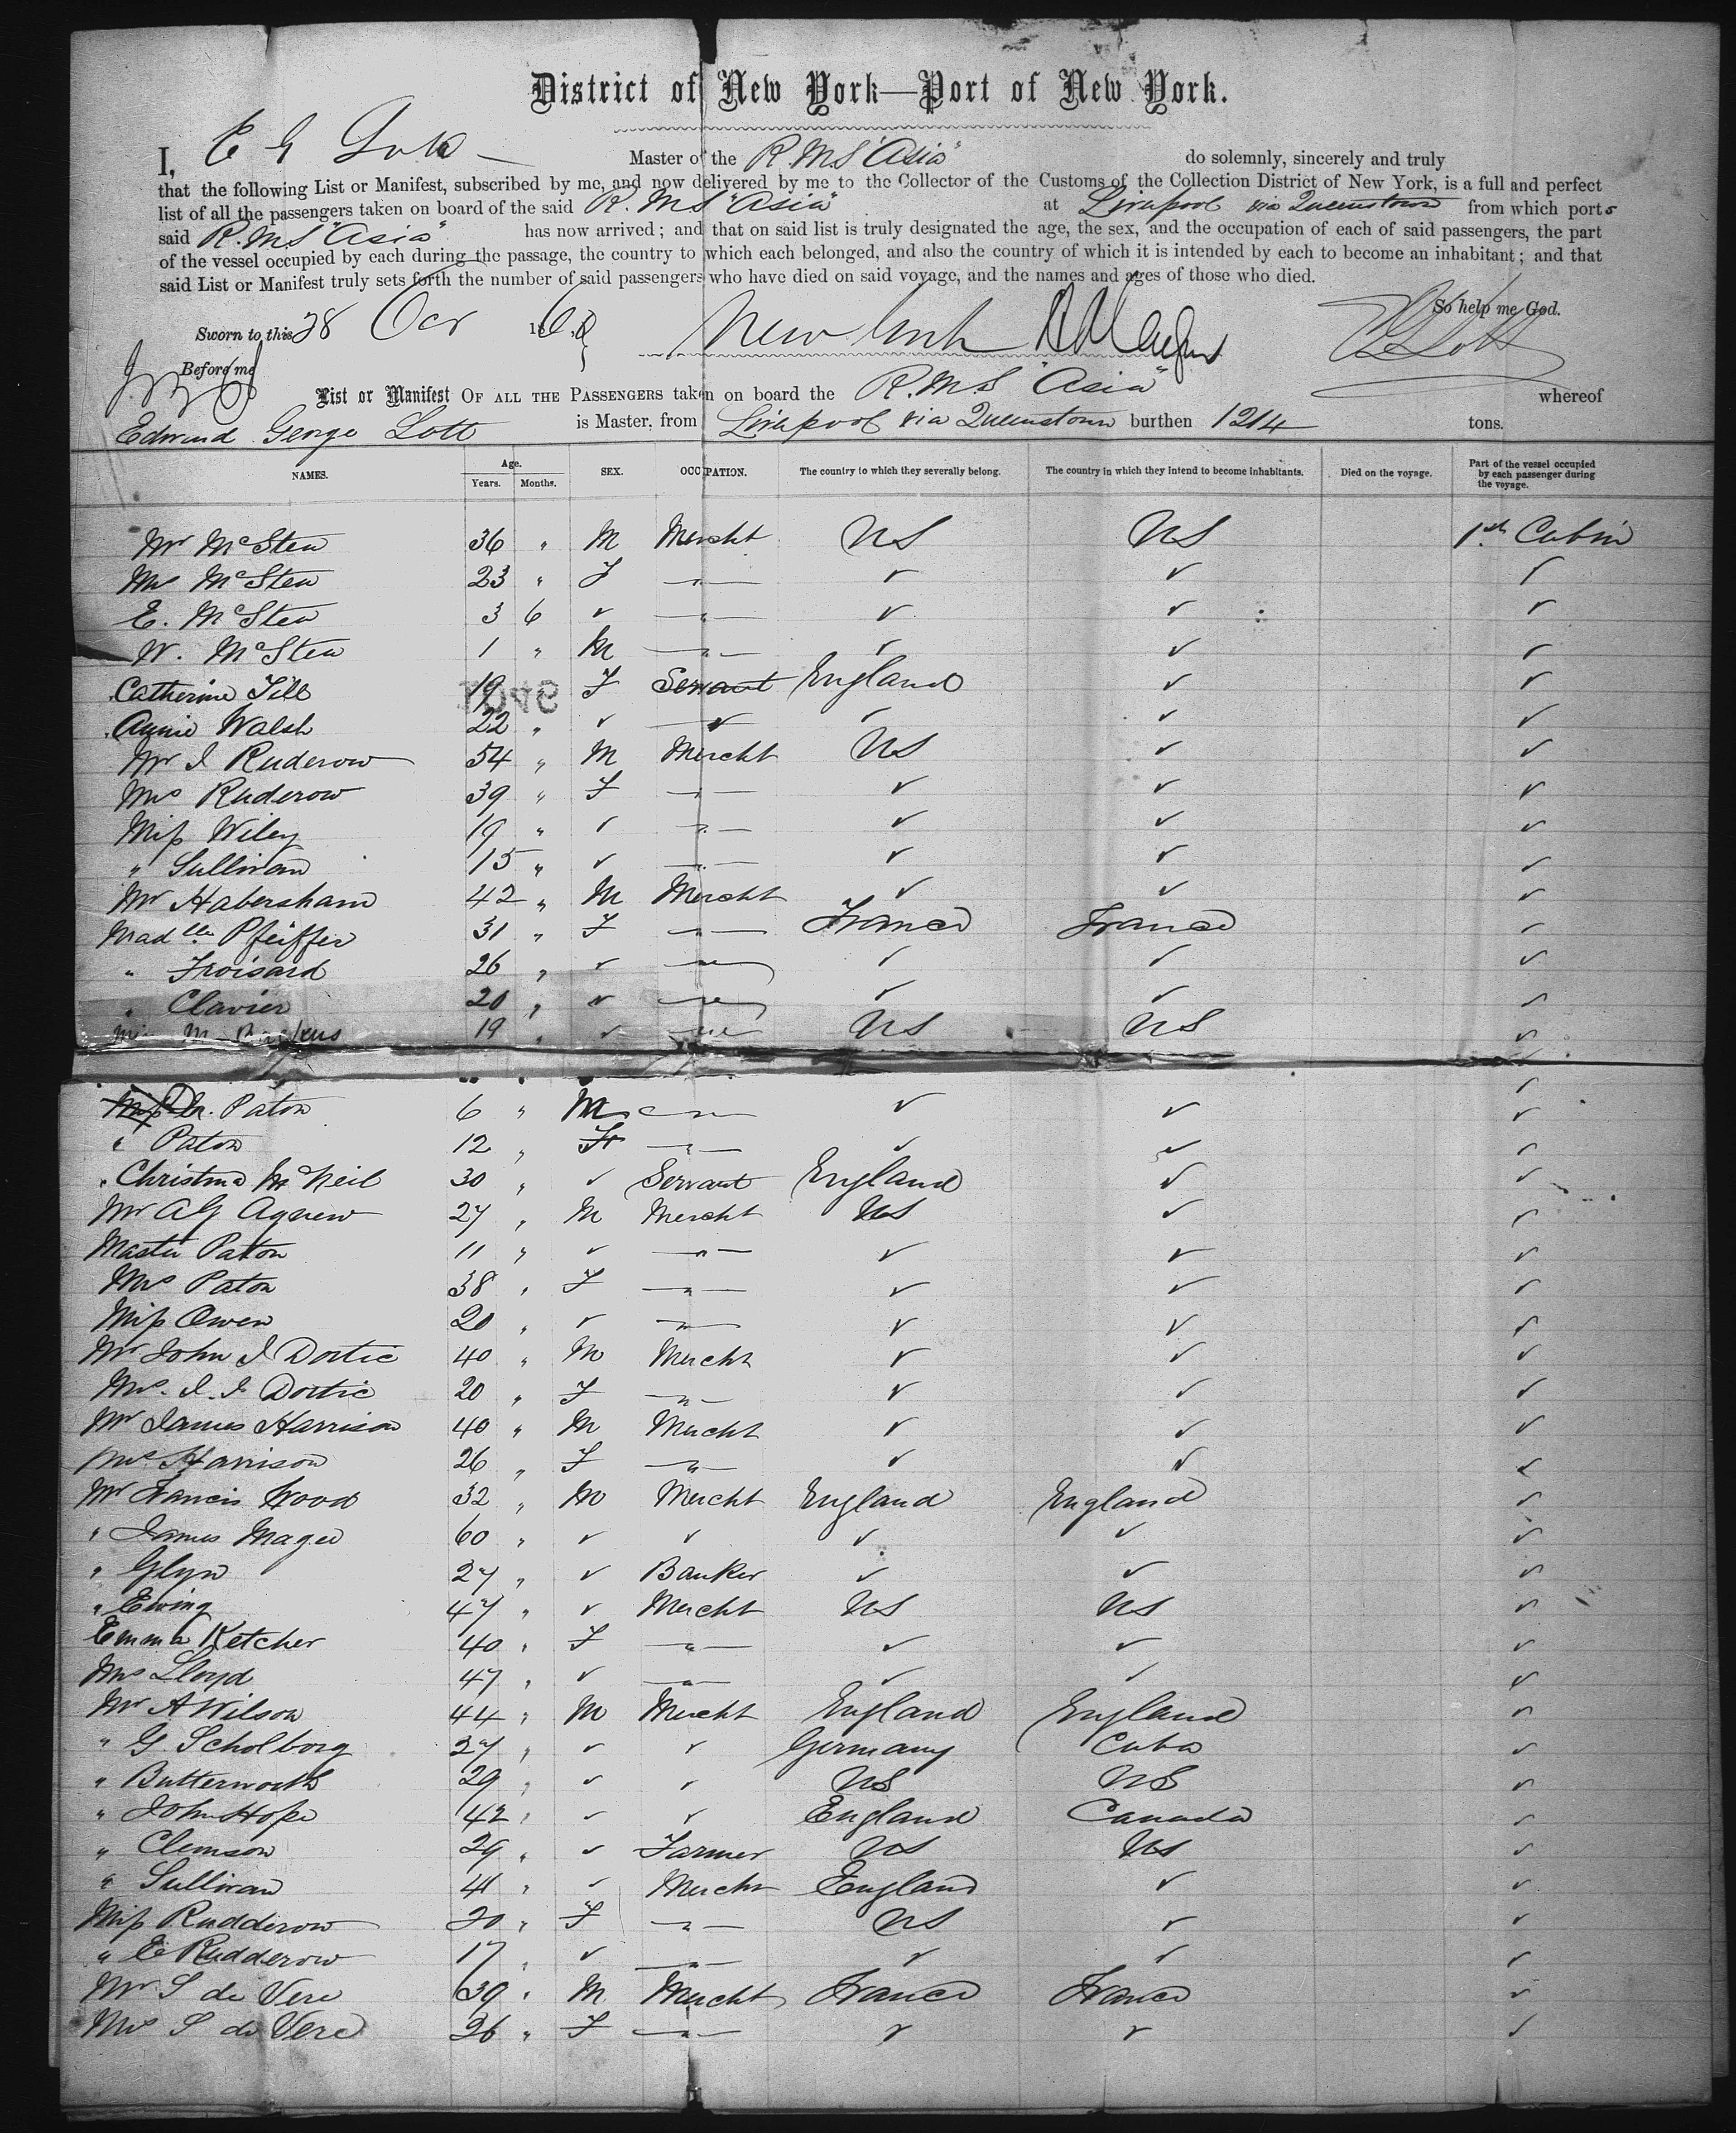 District of New York—Port of New York.
I, E G Lott Master of the R.M.S "Asia" do solemnly, sincerely and truly
that the following List or Manifest, subscribed by me, and now delivered by me to the Collector of the Customs of the Collection District of New York, is a full and perfect
list of all the passengers taken on board of the said R.M.S "Asia" at Liverpool via Queenstown from which ports
said R.M.S "Asia" has now arrived; and that on said list is truly designated the age, the sex, and the occupation of each of said passengers, the part
of the vessel occupied by each during the passage, the country to which each belonged, and also the country of which it is intended by each to become an inhabitant; and that
said List or Manifest truly sets forth the number of said passengers who have died on said voyage, and the names and ages of those who died.
So help me God.
Sworn to this 28 Oct 186 New York E G Lott
Before me
List or Manifest OF ALL THE PASSENGERS taken on board the R.M.S "Asia" whereof
Edward George Lott is Master, from Liverpool via Queenstown burthen 1214 tons.
NAMES. Age. Years. Months. SEX. OCCUPATION. The country to which they severally belong. The country in which they intend to become inhabitants. Died on the voyage. Part of the vessel occupied by each passenger during the voyage.
Mr McStea 36 " M Mercht US US 1st Cabin
Mrs McStea 23 " F —"— ✓ ✓ ✓
E. McStea 3 6 ✓ —"— ✓ ✓ ✓
W. McStea 1 " M —"— ✓ ✓ ✓
Catherine Till 19 F Servant England ✓ ✓
Annie Walsh 22 " ✓ ✓ ✓ ✓ ✓
Mr J Ruderow 54 " M Mercht US ✓ ✓
Mrs Ruderow 39 " F —"— ✓ ✓ ✓
Miss Wiley 19 " ✓ —"— ✓ ✓ ✓
" Sullivan 15 " ✓ —"— ✓ ✓ ✓
Mr Habersham 42 " M Mercht ✓ ✓ ✓
Madlle Pfeiffer 31 " F —"— France France ✓
" Froisard 26 " ✓ —"— ✓ ✓ ✓
" Clavier 20 " ✓ —"— ✓ ✓ ✓
M 19 " ✓ —"— US US ✓
Paton 6 " M —"— ✓ ✓ ✓
" Paton 12 " F —"— ✓ ✓ ✓
" Christina McNeil 30 " ✓ Servant England ✓ ✓
Mr A G Agnew 27 " M Mercht US ✓ ✓
Master Paton 11 " ✓ —"— ✓ ✓ ✓
Mrs Paton 38 " F —"— ✓ ✓ ✓
Miss Owen 20 " ✓ —"— ✓ ✓ ✓
Mr John J Dortic 40 " M Mercht ✓ ✓ ✓
Mrs. J. J. Dortic 20 " F —"— ✓ ✓ ✓
Mr James Harrison 40 " M Mercht ✓ ✓ ✓
Mrs Harrison 26 " F —"— ✓ ✓ ✓
Mr Francis Wood 32 " M Mercht England England ✓
" James Magee 60 " ✓ ✓ ✓ ✓ ✓
" Glyn 27 " ✓ Banker ✓ ✓ ✓
" Ewing 47 " ✓ Mercht US US ✓
Emma Ketcher 40 " F —"— ✓ ✓ ✓
Mrs Lloyd 47 " ✓ —"— ✓ ✓ ✓
Mr A Wilson 44 " M Mercht England England ✓
" G Scholborg 27 " ✓ ✓ Germany Cuba ✓
" Butterworth 29 " ✓ ✓ US US ✓
" John Hope 42 " ✓ ✓ England Canada ✓
" Clemson 29 " ✓ Farmer US US ✓
" Sullivan 41 " ✓ Mercht England ✓ ✓
Miss Rudderow 20 " F —"— US ✓ ✓
" E Rudderow 17 " ✓ —"— ✓ ✓ ✓
Mr S de Vere 39 " M Mercht France France ✓
Mrs S de Vere 26 " F —"— ✓ ✓ ✓